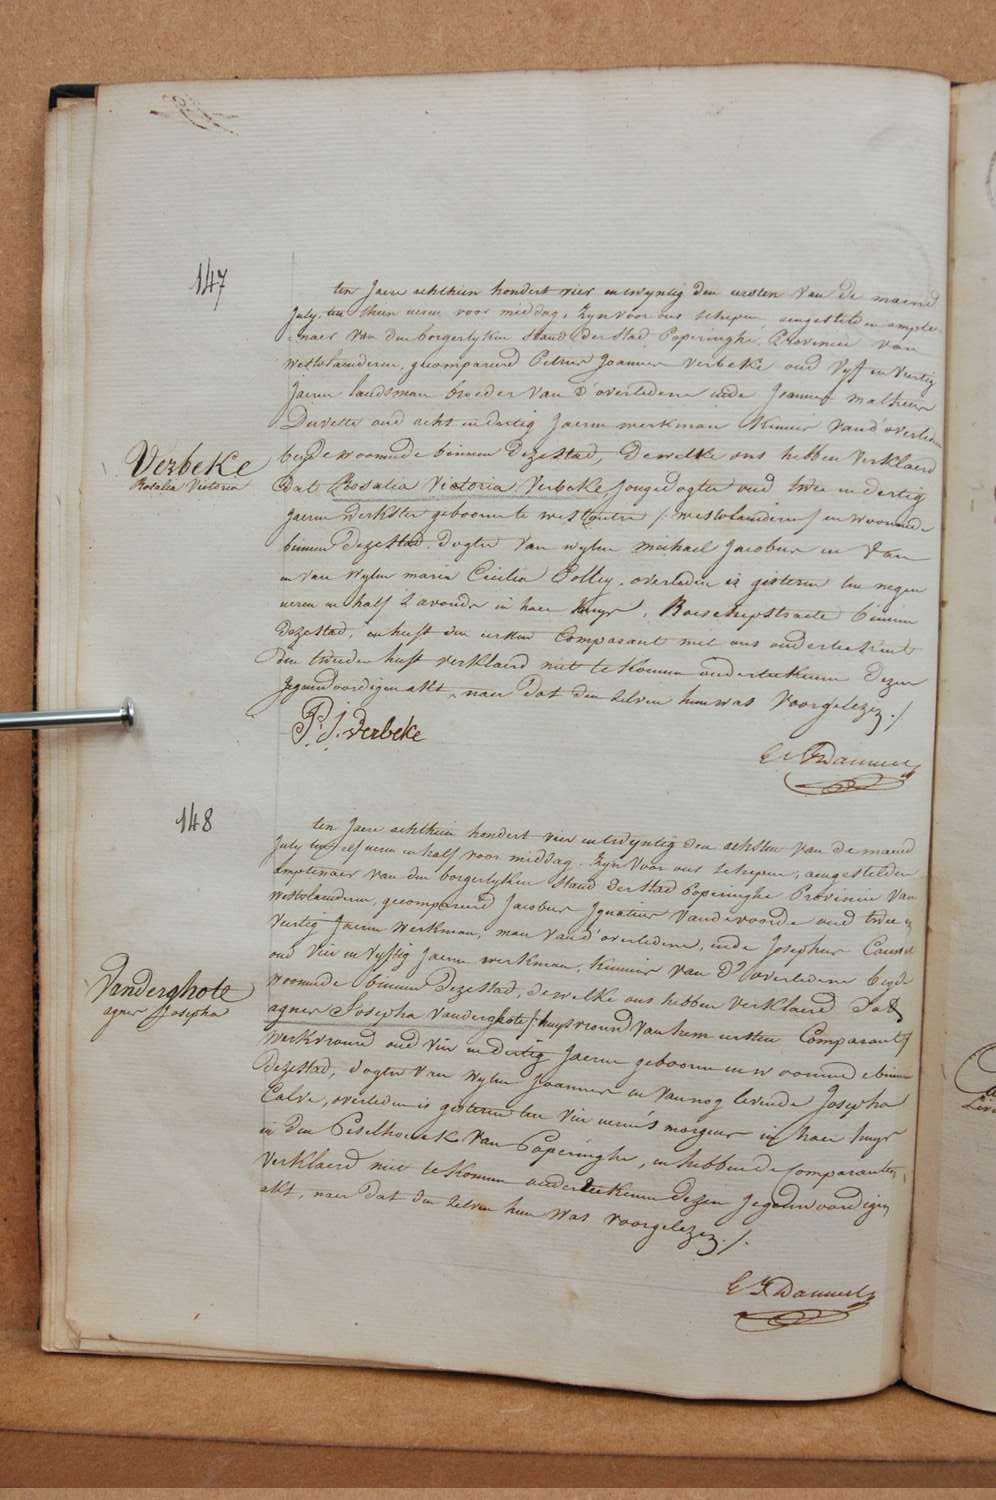 147
ten Jaere achthien hondert vier en twyntig den eersten van de maend
July, ten thien uren voor middag, Zyn voor ons schepen, aengestelden ampte
-naer van den borgerlyken stand der stad Poperinghe, Provincie van
westvlaenderen, gecompareerd Petrus Joannes Verbeke oud vyf en veertig
Jaeren landsman broeder van d'overledene ende Joannes Matheus
Dervelle oud acht en dertig Jaeren werkman kennis vand'overledene
beyde woonende binnen dezestad, dewelke ons hebben verklaerd
Verbeke
Rosalia Victoria
Dat Rosalia Victoria Verbeke Jongedogter oud twee en dertig
Jaeren werkster geboren te westoutre /:westvlaenderen/ en woonende
binnen dezestad. dogter van wylen michael Jacobus en van
en van wylen maria Cecilia Polley, overleden is gisteren ten negen
ueren en half 's avonds in haer huys, Boeschepstraete binnen
dezestad, en heeft den eersten Comparant met ons onderteekent
den tweeden heeft verklaerd niet te konnen onderteekenen dezen
Jegenwoordigen akt, naer dat den zelven hun was voorgelezen./
P. J. Verbeke
148
ten Jaere achthien hondert vier en twyntig den achsten van de maend
July ten elf uren en half voor middag. Zyn voor ons schepen, aengestelden
amptenaer van den borgerlyken stand der stad Poperinghe Provincie van
westvlaenderen, gecompareerd Jacobus Ignatius Vandevoorde oud twee en
veertig Jaeren werkman, man vand'overledene, ende Josephus
oud vier en vyftig Jaeren werkman, kennis van d'overledene beyde
woonende binnen dezestad, dewelke ons hebben verklaerd Dat
Vanderghote
agnes Josepha
agnes Josepha Vanderghote /:huysvrouw van hem eersten Comparant/
werkvrouw oud vier en dertig Jaeren geboren en woonende binnen
dezestad, dogter van wylen Joannes en van nog levende Josepha
Calve, overleden is gisteren ten vier uren 's morgens in haer huys
in den Peselhoek van Poperinghe, en hebben de Comparanten
verklaerd niet te konnen onderteekenen dezen Jegenwoordigen
akt, naer dat den zelven hun was voorgelezen./.